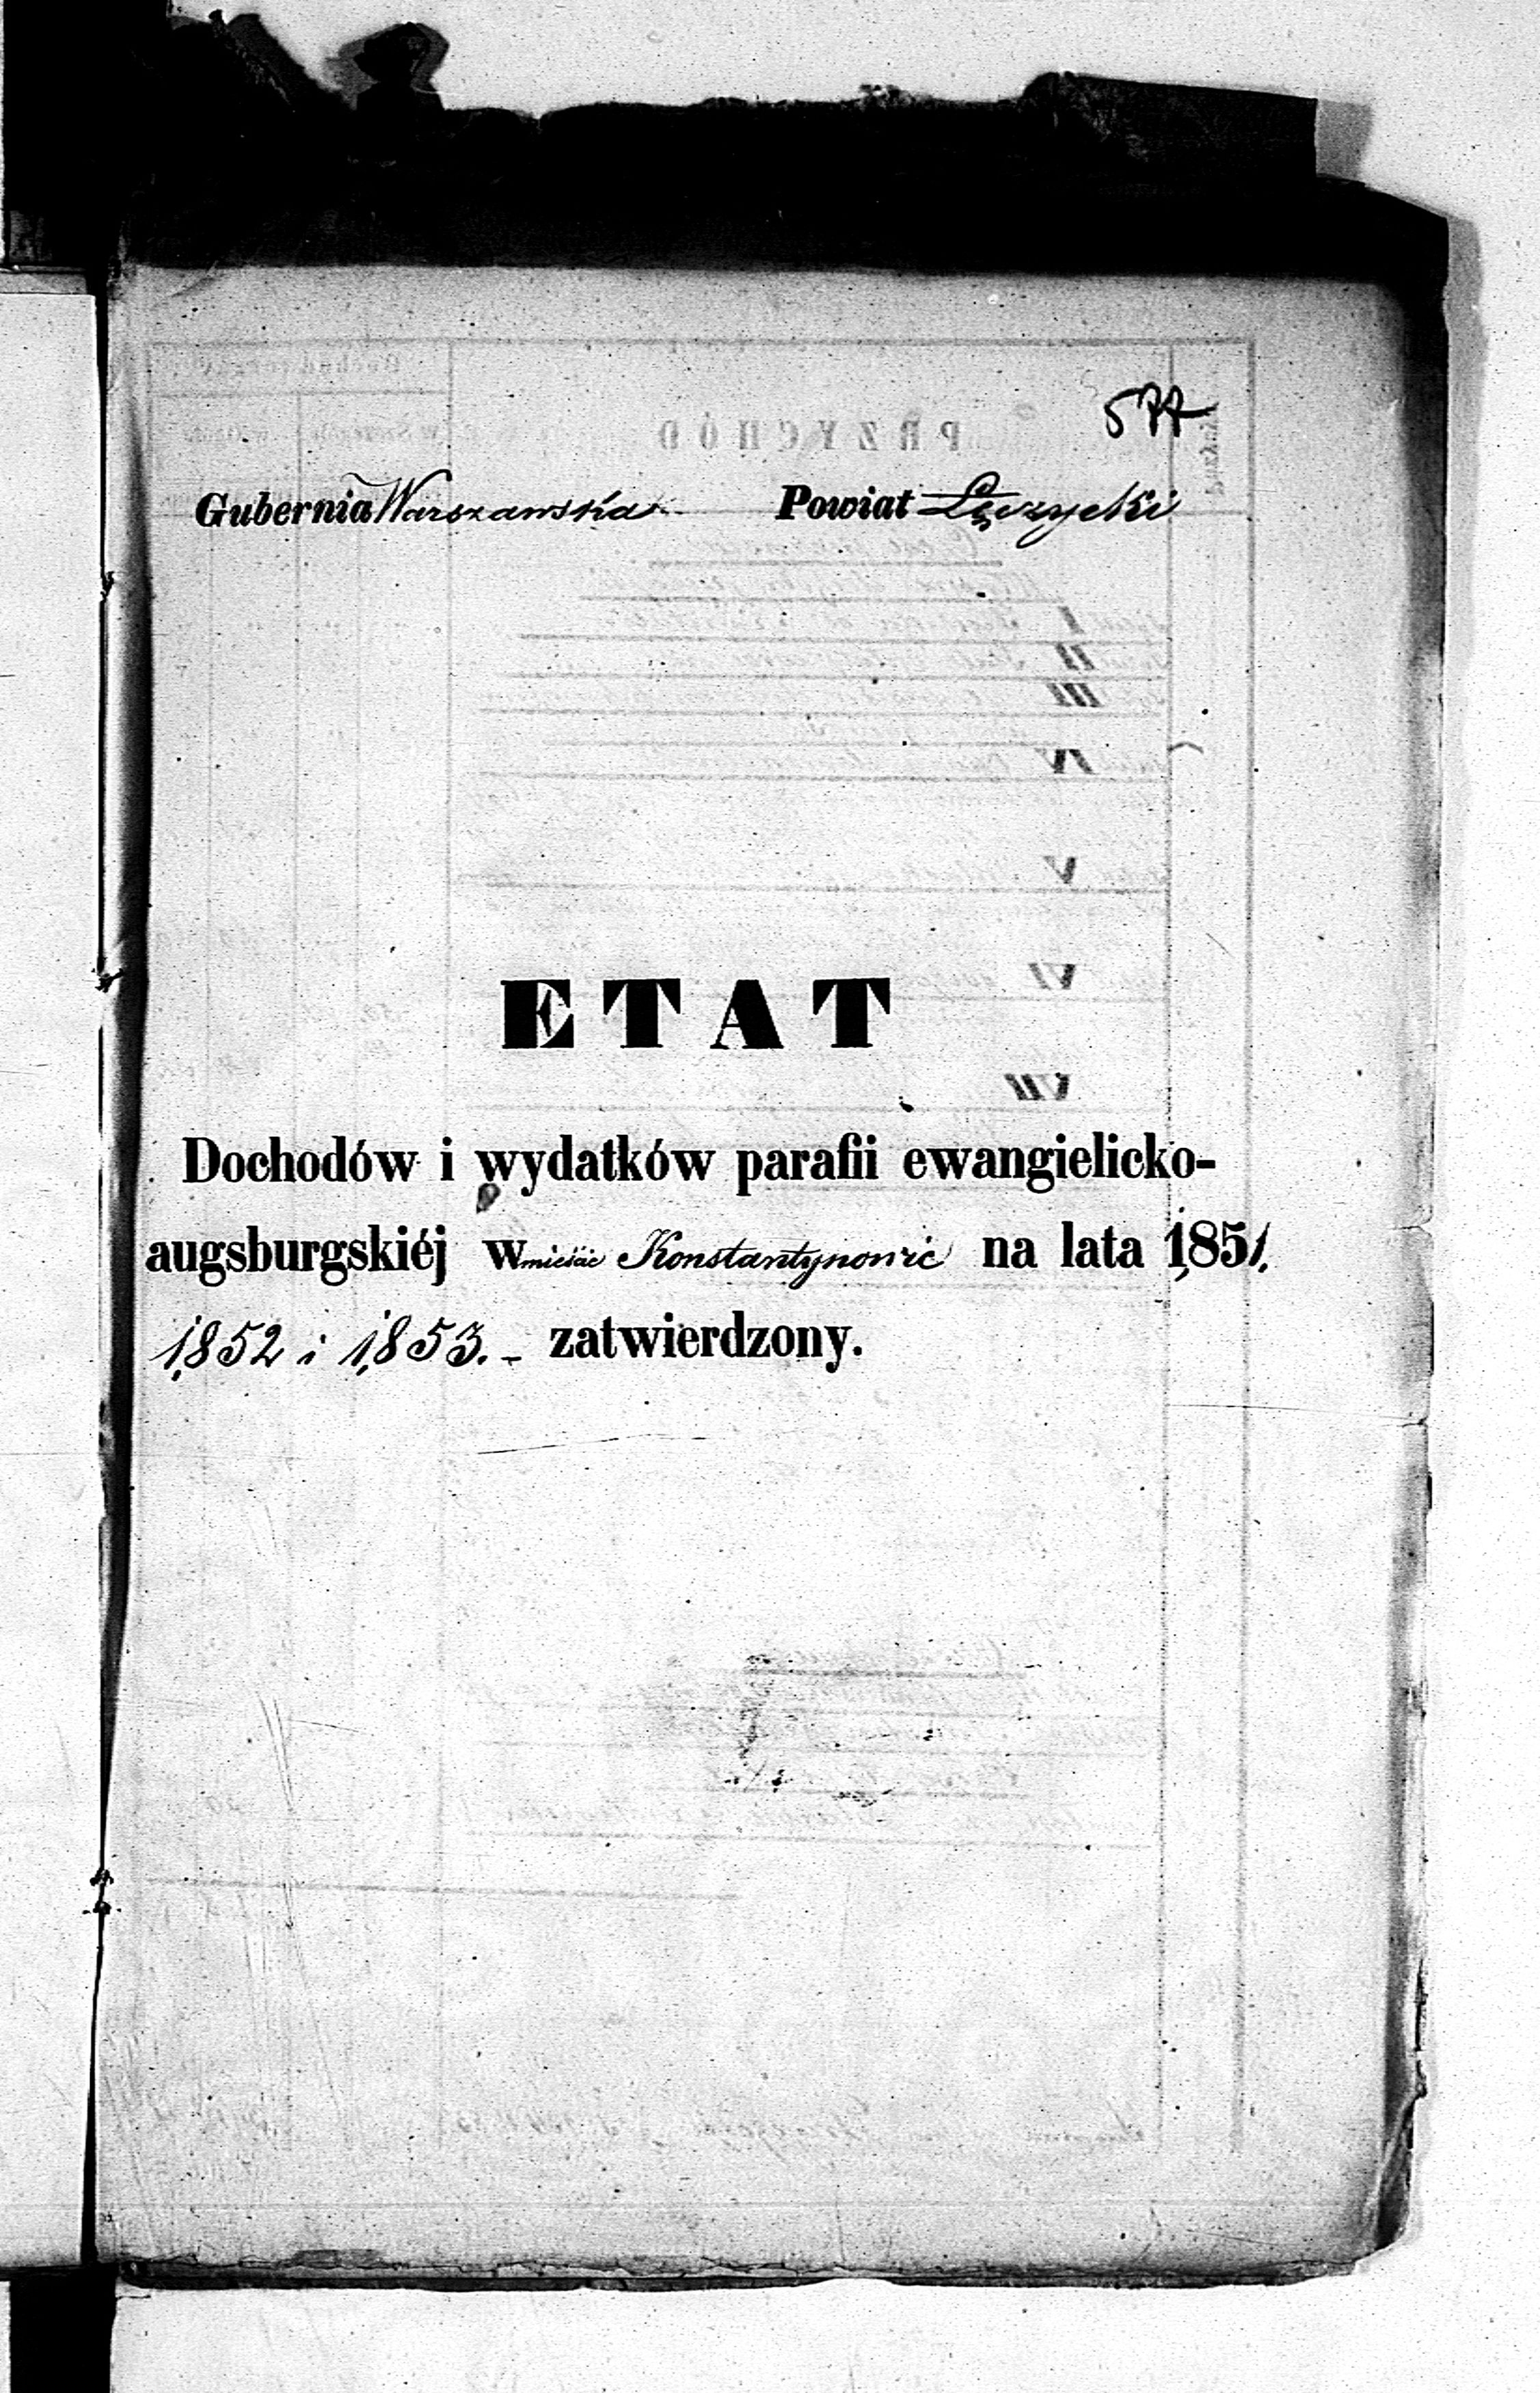 577
Gubernia Warszawska Powiat Łęczycki
ETAT
Dochodów i wydatków parafii ewangielicko-
augsburgskiéj w mieście Konstantynowie na lata 1851.
1852 i 1853. - zatwierdzony.